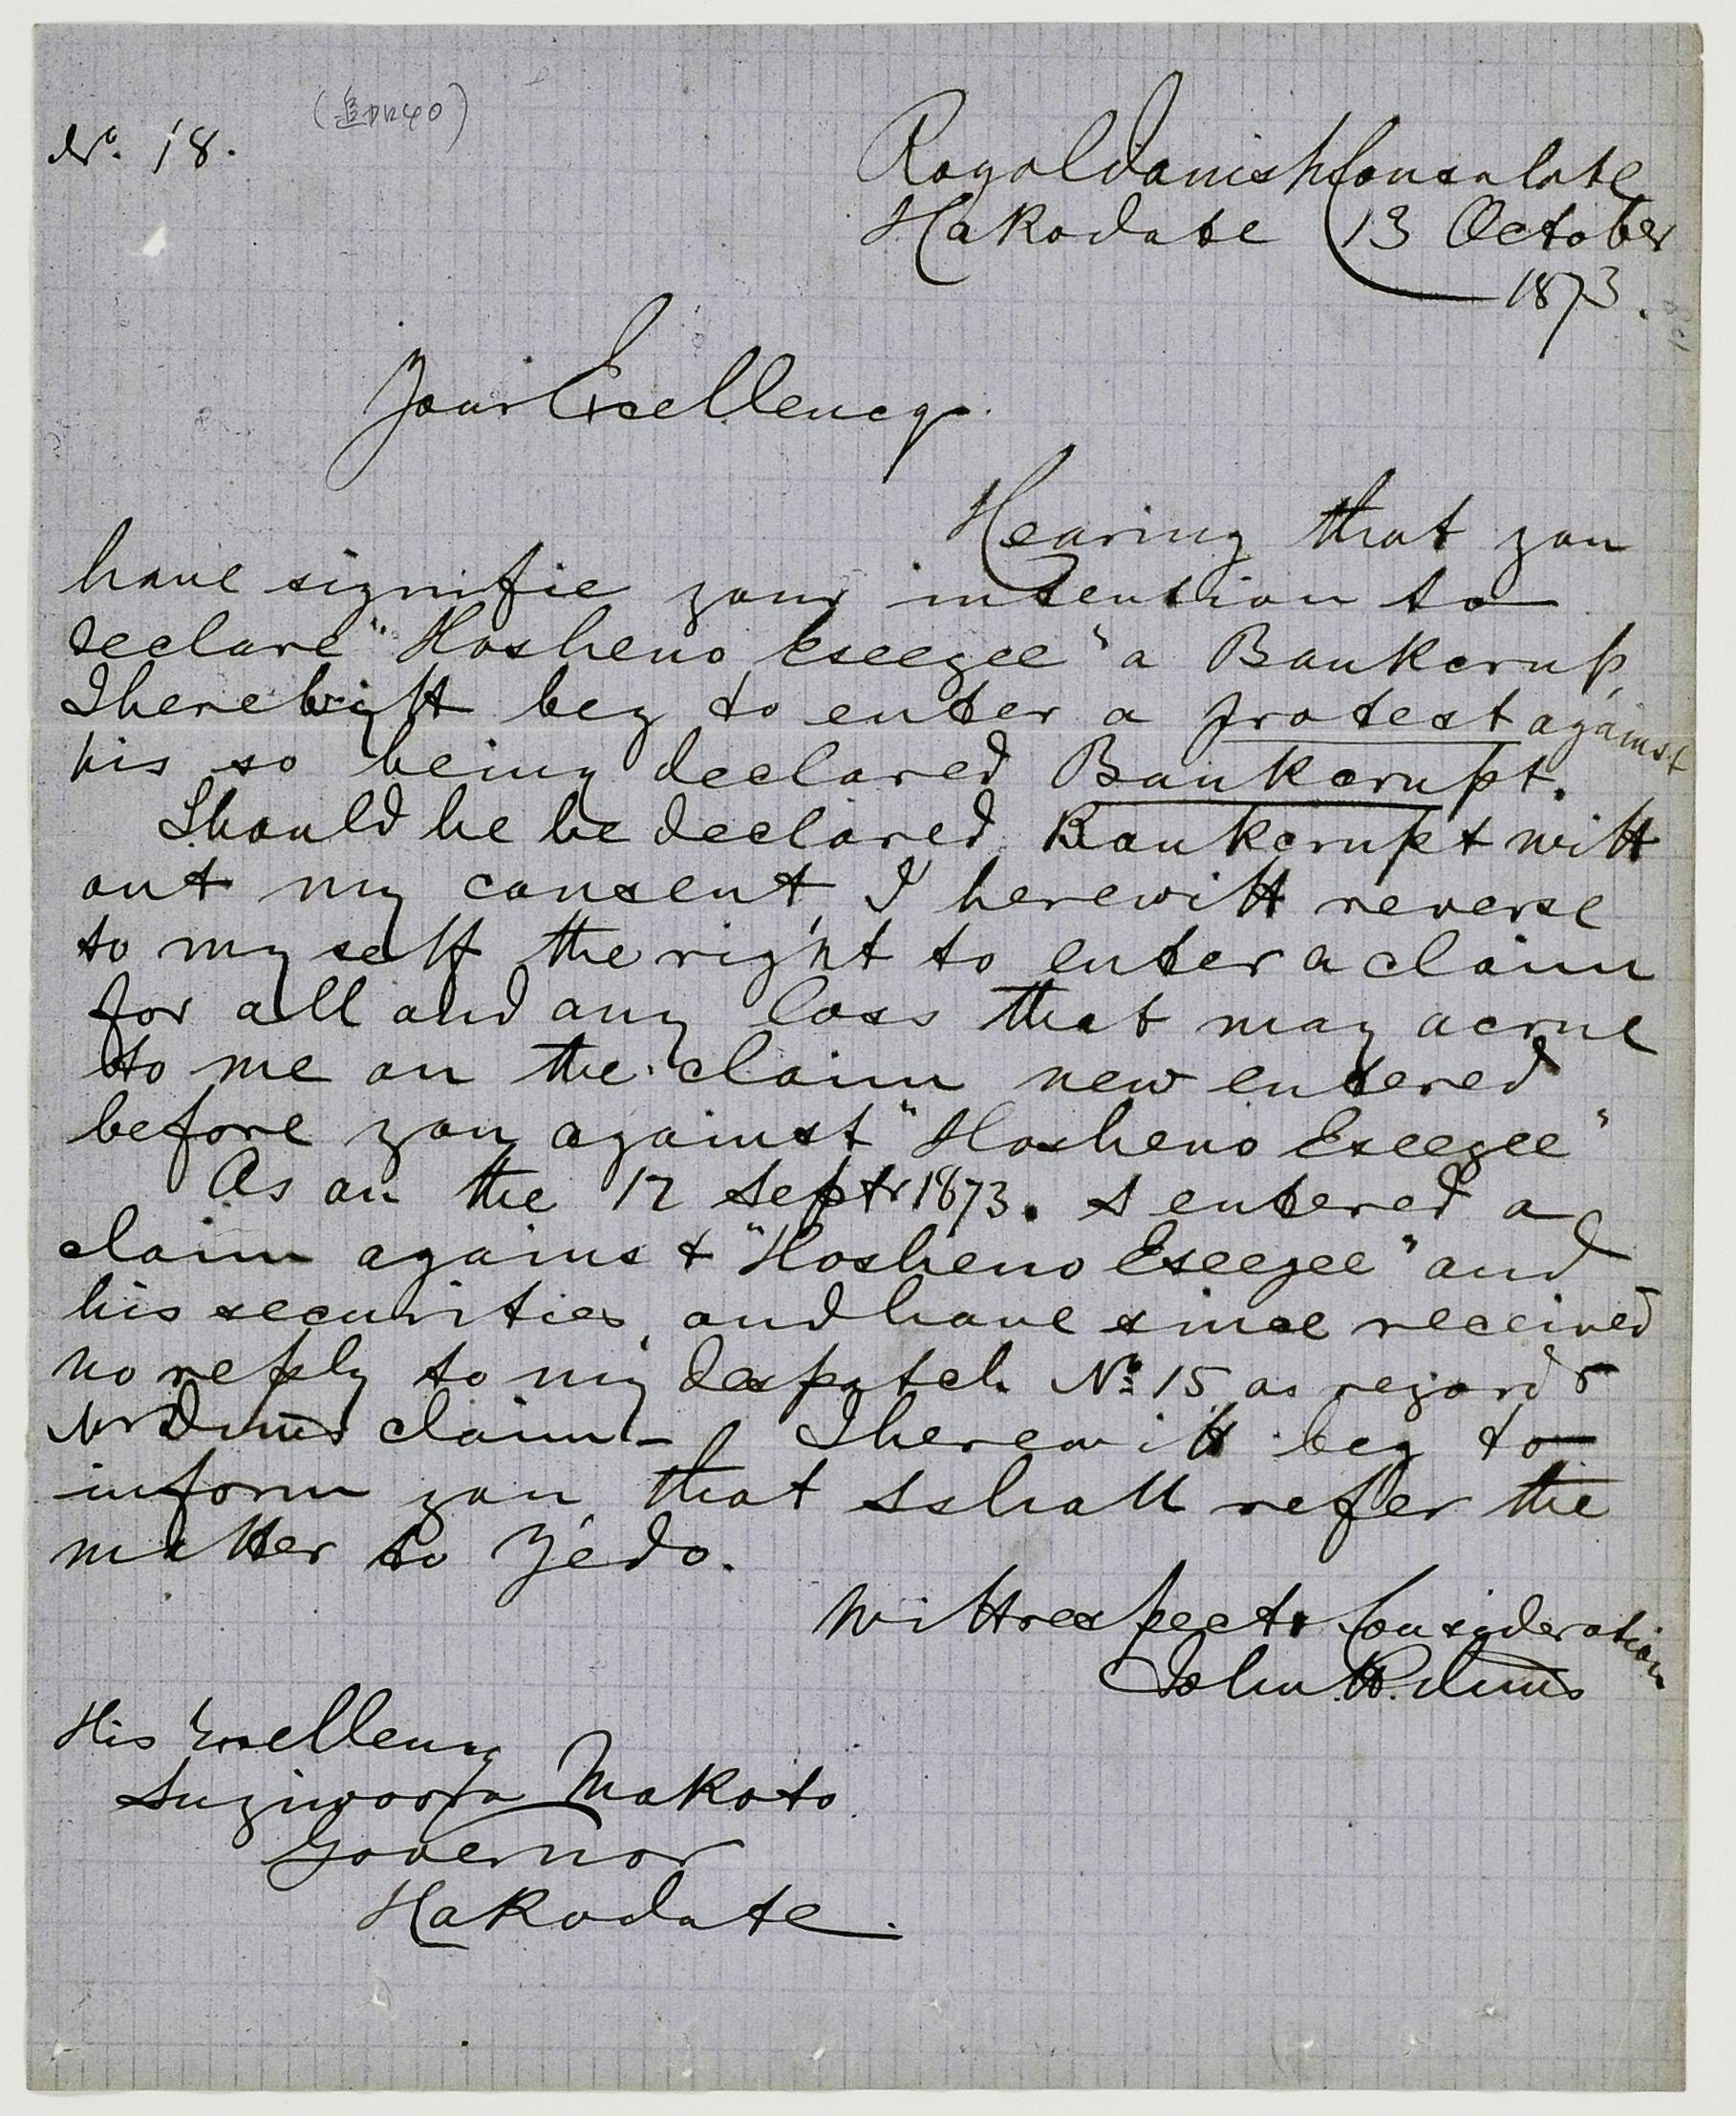 No. 18.
Royal Danish Consulate
Hakodate 13 October
1873.
Your Excellency.
Hearing that you
have signifie your intention to
declare "Hosheno Eseegee" a Bankcrup,
I herewitt beg to enter a protest against
his so being declared Bankcrupt.
Should he be declared Bankcrupt witt
out my consent, I herewitt reverse
to my self the right to enter a claim
for all and any loss that may acrue
to me on the claim new entered
before you against "Hosheno Eseegee"
As on the 12 Septr 1873. I entered a
claim against "Hosheno Eseegee" and
his securities, and have since received
no reply to my despatch No. 15 as regards
Mr Duus claim - I herewitt beg to
inform you that I shall refer the
matter to Yédo.
Witt respect & Consideration
John H. Duus
His Excellency
Sugiwoora Makoto
Governor
Hakodate.